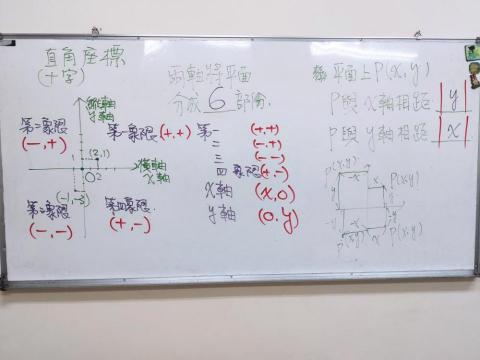 直角座標
(十字)
縱軸
y軸
第二象限
(-,+)
第一象限(+,+)
(2,1)
1
橫軸
x軸
O 2
(-1,-3)
第三象限
(-,-)
第四象限
(+,-)
兩軸將平面
分成 6 部份
第一 (+,+)
二 (-,+)
三 (-,-)
四 象限 (+,-)
x軸 (x,0)
y軸 (0,y)
平面上P(x,y)
P與x軸相距 |y|
P與y軸相距 |x|
P(x,y)
P(x,y)
-x
x
y
y
-y
-y
-x
x
P(x,y)
P(x,y)